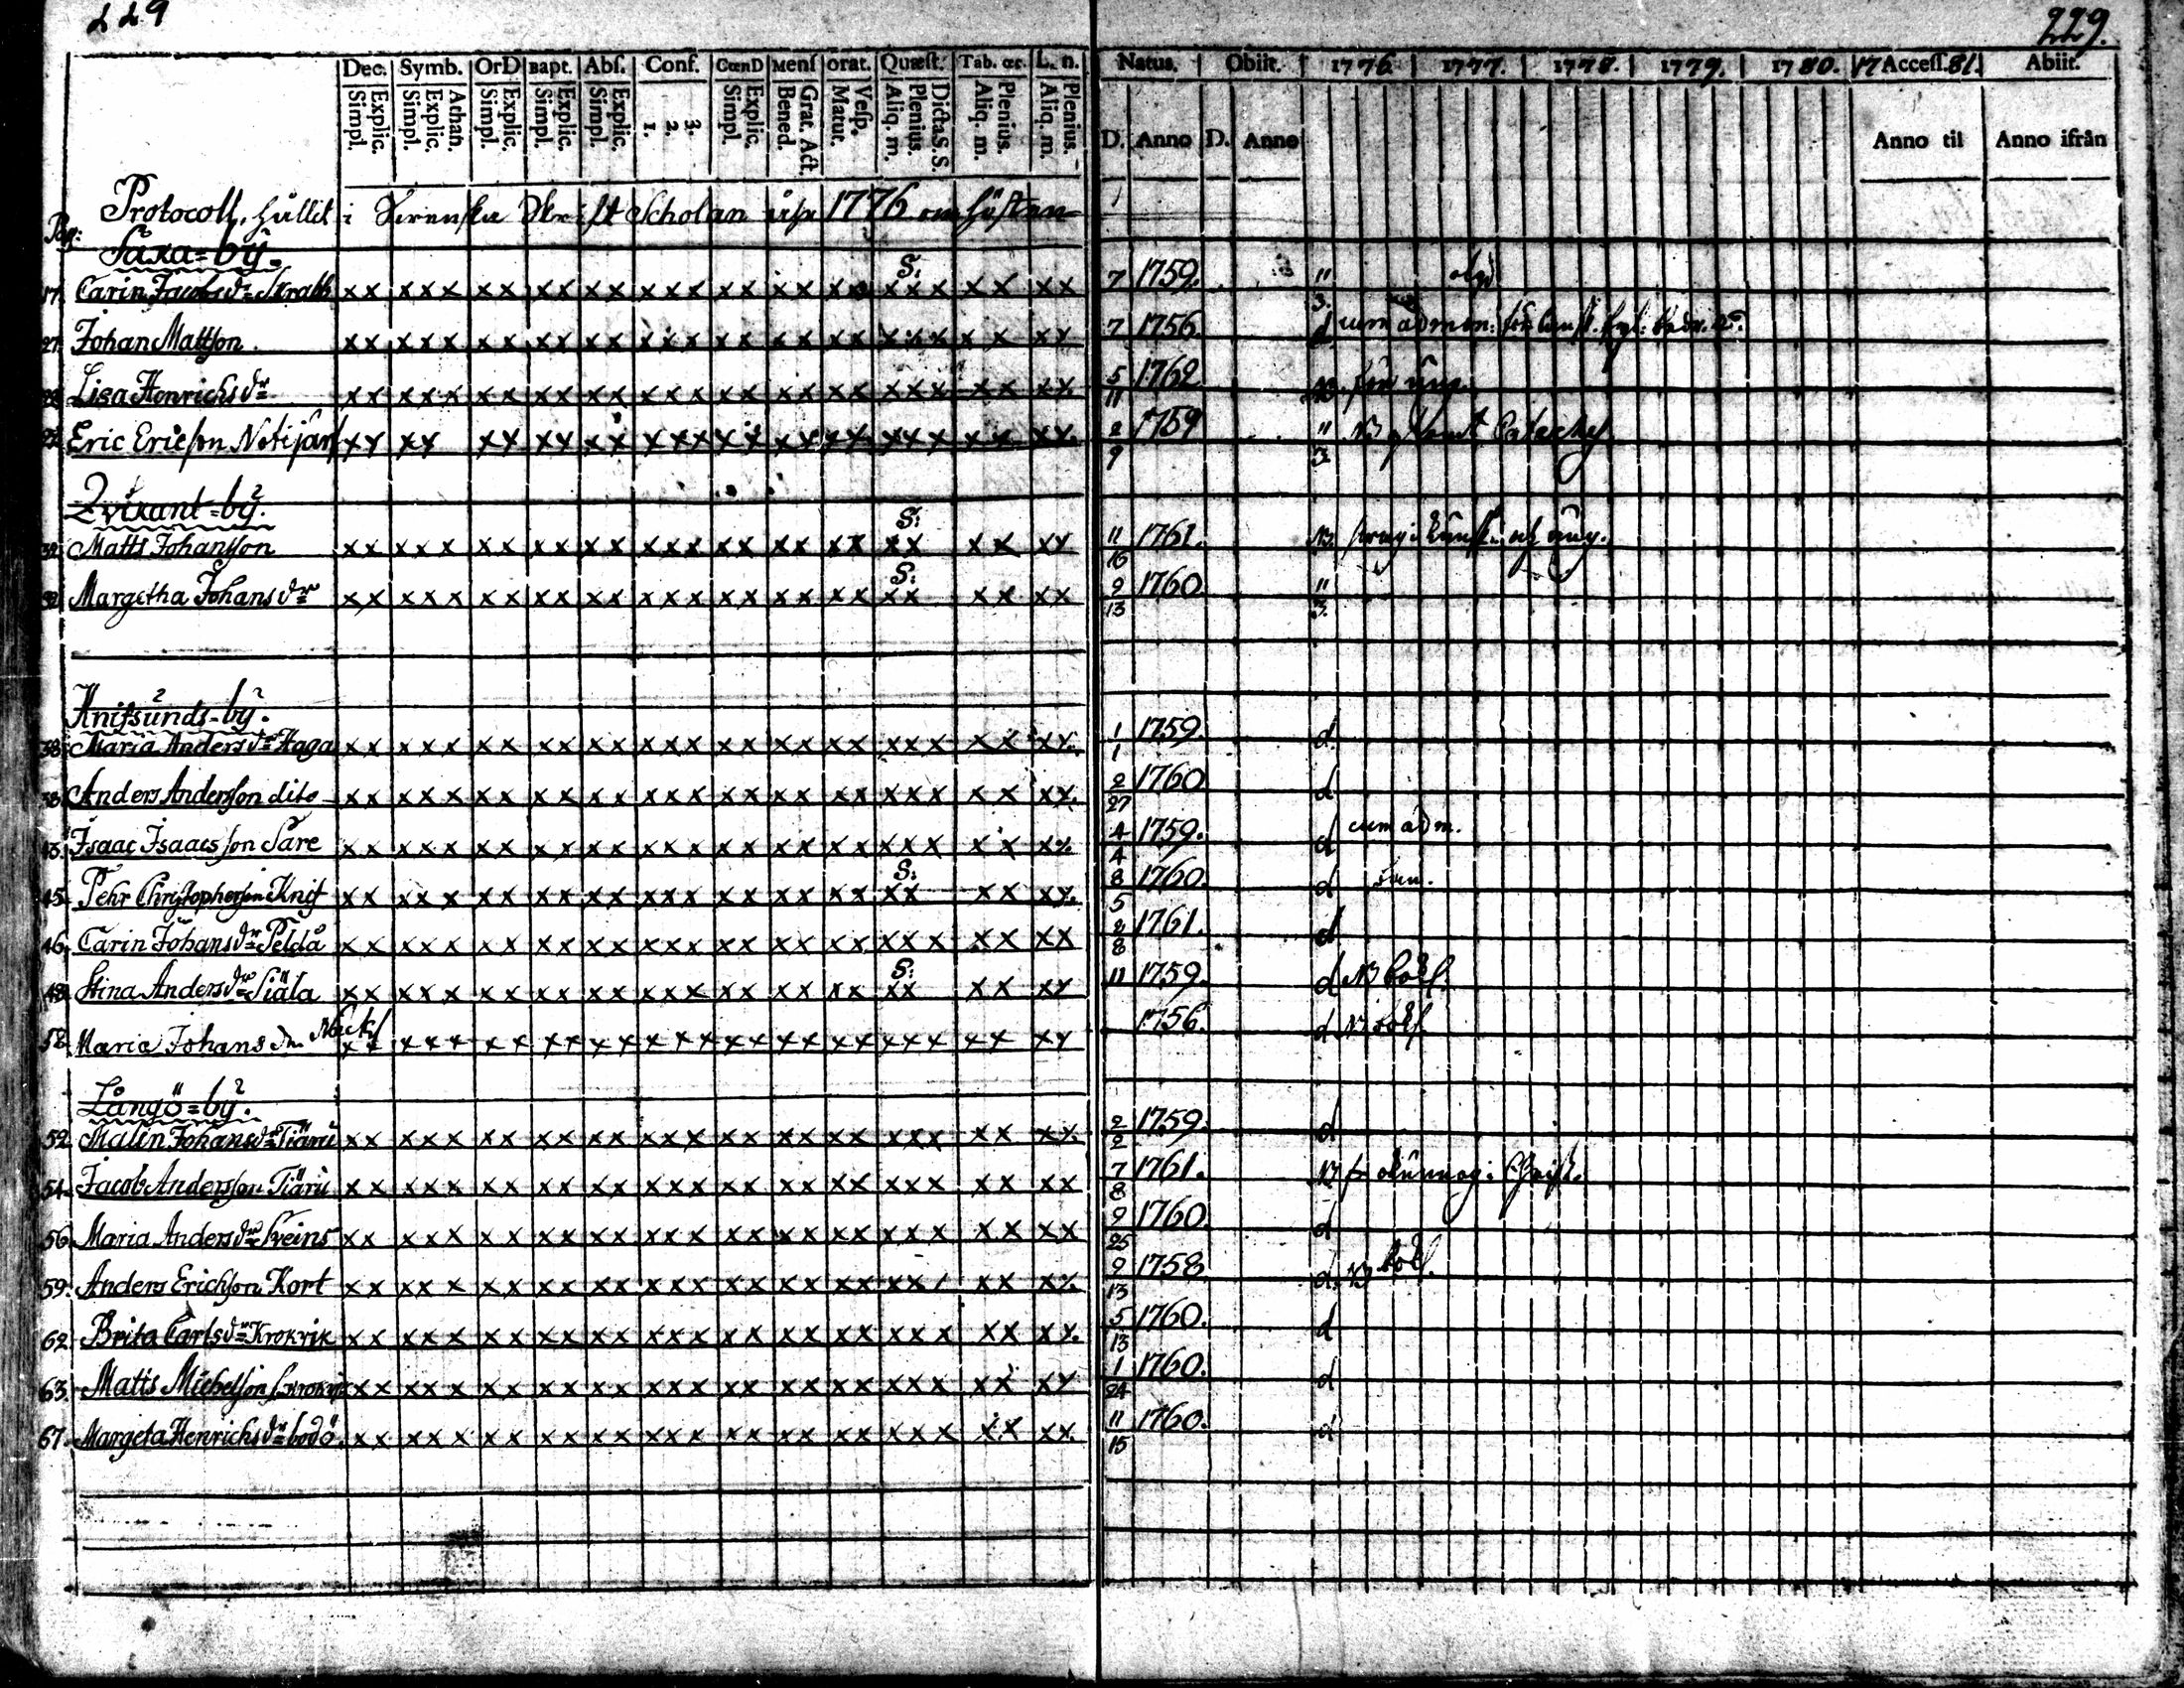 229
229.
Dec. Symb. OrD Bapt. Abſ. Conf. CœnD Menſ orat. Quæſt. Tab. œc. L. n. Natus. Obiit. 1776. 1777. 1778. 1779. 1780. 17 Acceſſ. 81. Abiit.
Simpl. Explic. Simpl. Explic. Athan. Simpl. Explic. Simpl. Explic. Simpl. Explic. 1. 2. 3. Simpl. Explic. Bened. Grat. Act. Matut. Veſp. Aliq. m. Plenius. Dicta S.S. Aliq. m. Plenius. Aliq. m. Plenius. D. Anno D. Anno Anno til Anno ifrån
Protocoll, hållit i Svenska Skrift Scholan åhr 1776 om hösten
Pag:
Saxa=by.
17. Carin Jacobs dr xx xxx xx xx xx xxx xx xx xx S: xxx xx xx 7 1759. " 3.
27. Johan Mattson. xx xxx xx xx xx xxx xx xx xx xxx xx xx 7 1756. d cum admon:
Lisa Henrichs dr xx xxx xx xx xx xxx xx xx xx xxx xx xx 5/11 1762
Eric Ericson xx xx xx xx xx xxx xx xx xx xxx xx xx. 2/9 1759 " 3. NB
Zvixant=by.
Matts Johanson xx xxx xx xx xx xxx xx xx xx S: xx xx xx 11/16 1761. NB
32. Margetha Johans dr xx xxx xx xx xx xxx xx xx xx S: xx xx xx 9/13 1760 " 3.
Knifsunds-by.
38. Maria Anders dr Haga xx xxx xx xx xx xxx xx xx xx xxx xx xx. 1/1 1759. d
38. Anders Anderson dito xx xxx xx xx xx xxx xx xx xx xxx xx xx. 2/27 1760 d
43. Isaac Isaacs son Sare xx xxx xx xx xx xxx xx xx xx xxx xx xx 4/4 1759. d cum adm.
45. Pehr Christopherson Knif xx xxx xx xx xx xxx xx xx xx S: xx xx xx. 8/5 1760. d
46. Carin Johans dr Peldå xx xxx xx xx xx xxx xx xx xx xxx xx xx 2/8 1761. d
48. Stina Anders dr Siäla xx xxx xx xx xx xxx xx xx xx S: xx xx xx 11 1759. d NB
58. Maria Johans dr xx xxx xx xx xx xxx xx xx xx xxx xx xx 1756. d NB
Långö=by.
52. Malin Johans dr Tiäru xx xxx xx xx xx xxx xx xx xx xxx xx xx. 2/2 1759. d
54. Jacob Anderson Tiäru xx xxx xx xx xx xxx xx xx xx xxx xx xx 7/8 1761. NB
56. Maria Anders dr Sveins xx xxx xx xx xx xxx xx xx xx xxx xx xx 9/25 1760. d
59. Anders Erichson Kort xx xxx xx xx xx xxx xx xx xx xx/ xx xx. 9/13 1758 d. NB
62. Brita Carls dr Krokvik xx xxx xx xx xx xxx xx xx xx xxx xx xx. 5/13 1760. d
63. Matts Michelson xx xxx xx xx xx xxx xx xx xx xxx xx xx 1/24 1760. d
67. Margeta Henrichs dr bodö. xx xxx xx xx xx xxx xx xx xx xxx xx xx. 11/15 1760. d